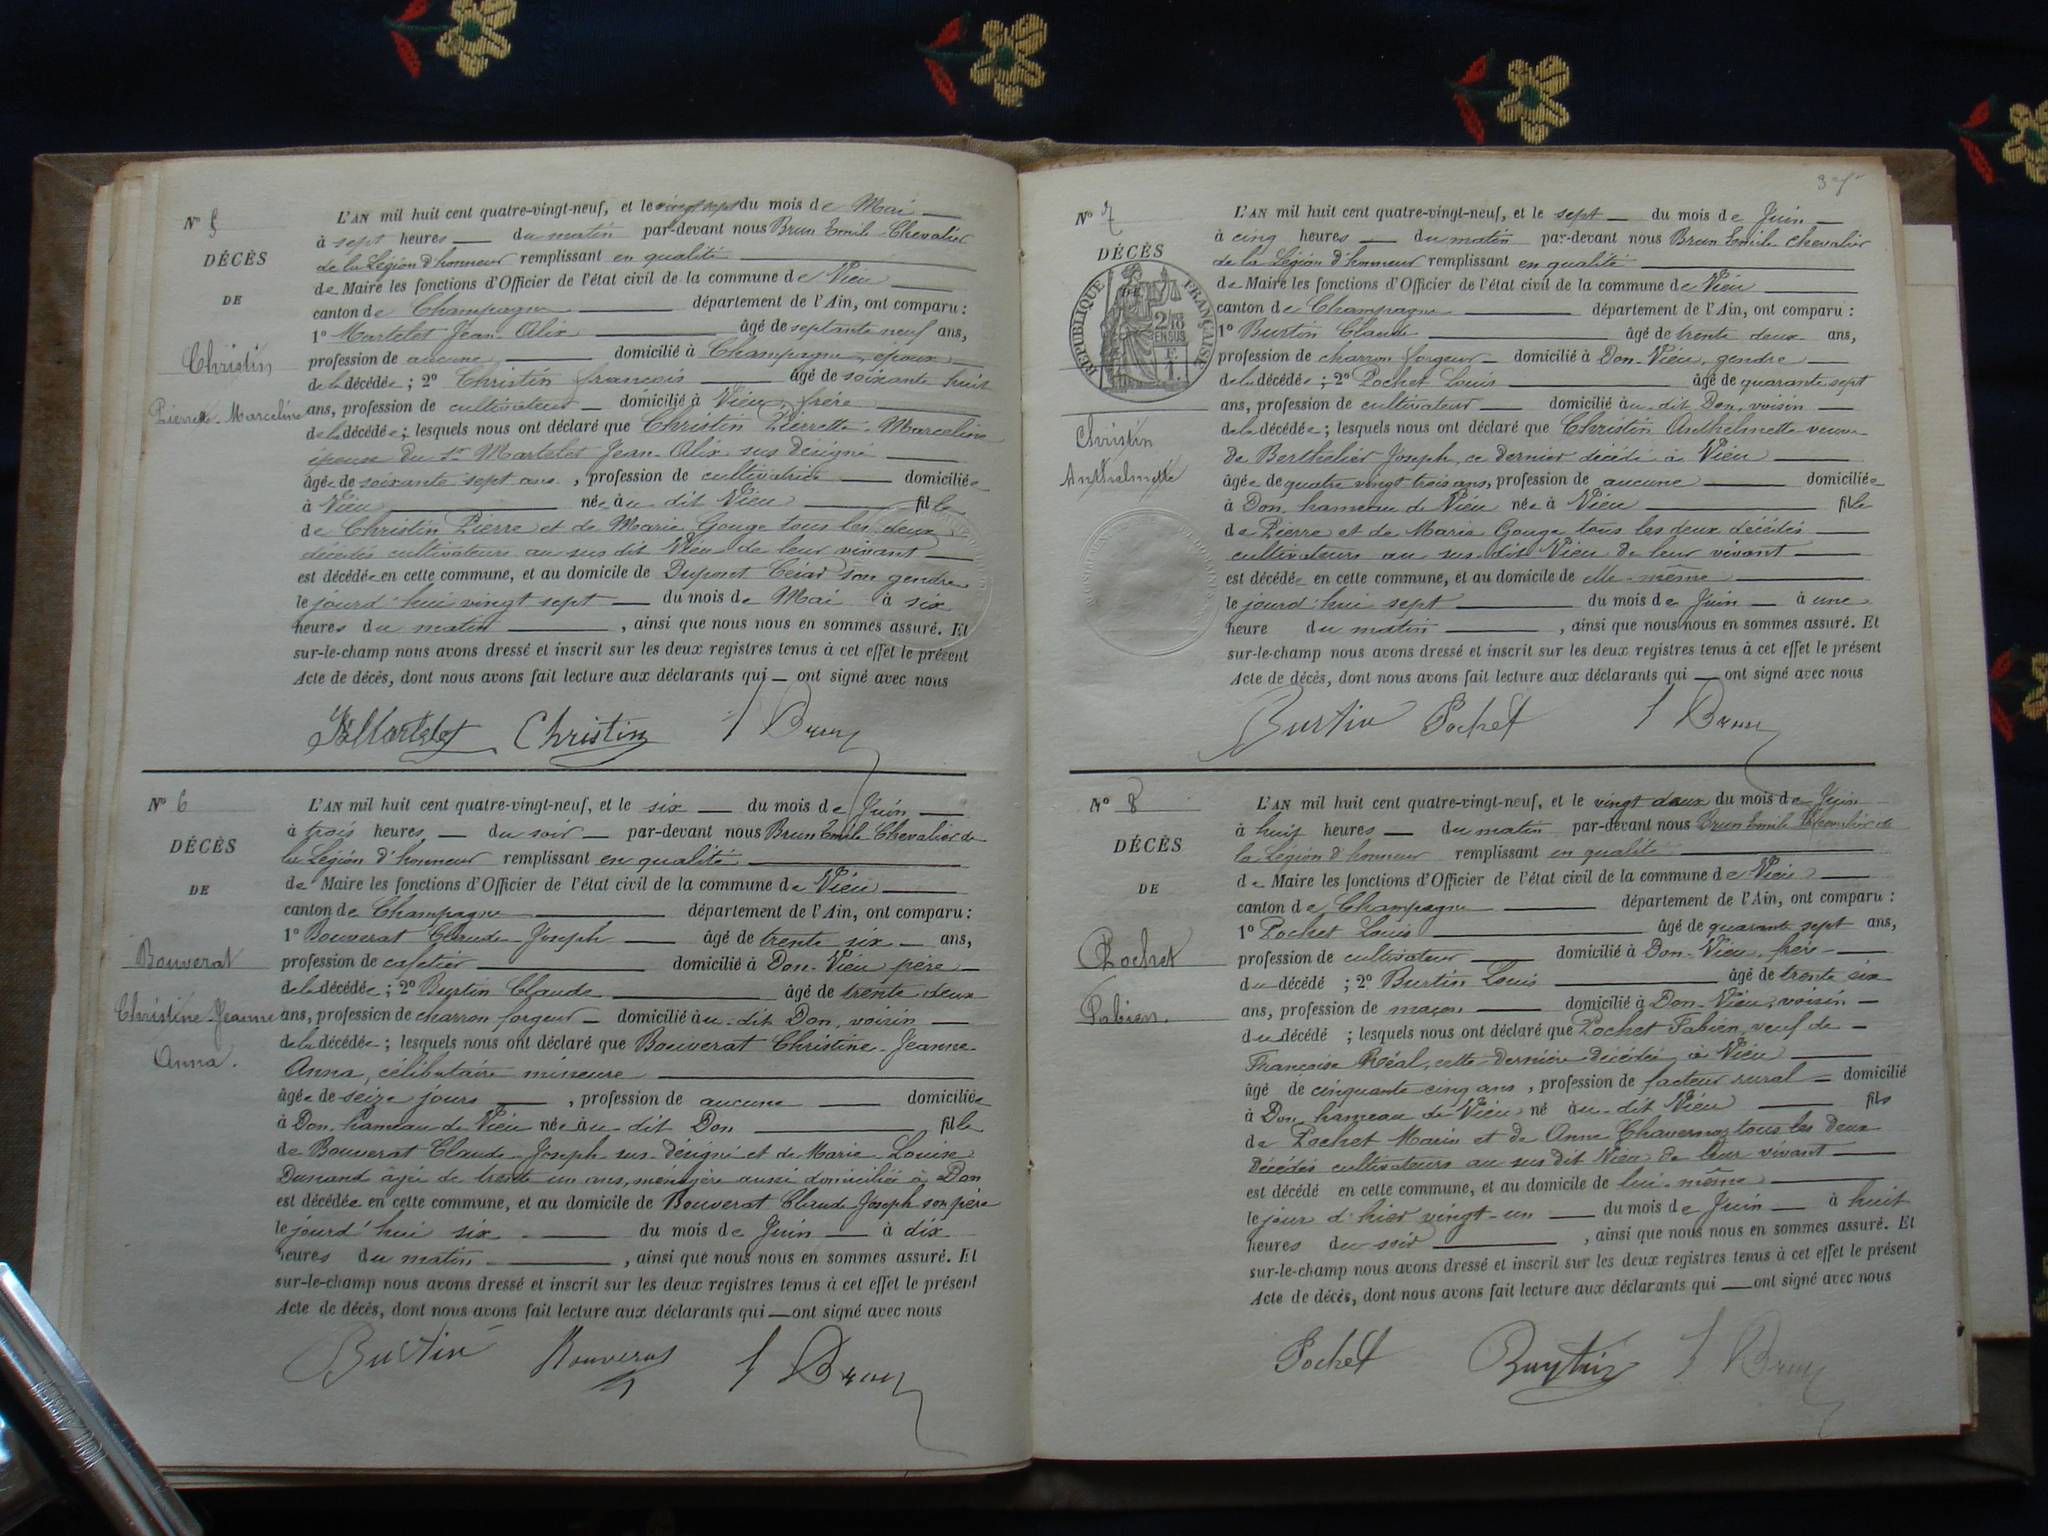 N° 5
DÉCÈS
DE
Christin
Pierrette Marceline
L'AN mil huit cent quatre-vingt-neuf, et le vingt sept du mois de Mai
à sept heures, du matin par-devant nous Brun Emile Chevalier
de la Légion d'honneur remplissant en qualité
de Maire les fonctions d'Officier de l'état civil de la commune de Vieu
canton de Champagne département de l'Ain, ont comparu :
1° Martelet Jean-Alix âgé de septante neuf ans,
profession de aucune domicilié à Champagne, époux
de la décédée ; 2° Christin françois âgé de soixante huit
ans, profession de cultivateur domicilié à Vieu, frère
de la décédée ; lesquels nous ont déclaré que Christin Pierrette Marceline
épouse du sr Martelet Jean-Alix sus désigné
âgée de soixante sept ans, profession de cultivatrice domiciliée
à Vieu née àu dit Vieu fille
de Christin Pierre et de Marie Gouge tous les deux
décédés cultivateurs au sus dit Vieu de leur vivant
est décédée en cette commune, et au domicile de Dupont César son gendre
le jourd'hui vingt sept du mois de Mai à six
heures du matin, ainsi que nous nous en sommes assuré. Et
sur-le-champ nous avons dressé et inscrit sur les deux registres tenus à cet effet le présent
Acte de décès, dont nous avons fait lecture aux déclarants qui ont signé avec nous
Martelet Christin Brun
N° 6
DÉCÈS
DE
Bouverat
Christine Jeanne
Anna.
L'AN mil huit cent quatre-vingt-neuf, et le six du mois de Juin
à trois heures, du soir par-devant nous Brun Emile Chevalier de
la Légion d'honneur remplissant en qualité
de Maire les fonctions d'Officier de l'état civil de la commune de Vieu
canton de Champagne département de l'Ain, ont comparu :
1° Bouverat Claude-Joseph âgé de trente six ans,
profession de cafetier domicilié à Don-Vieu père
de la décédée ; 2° Burtin Claude âgé de trente deux
ans, profession de charron forgeur domicilié àu-dit Don, voisin
de la décédée ; lesquels nous ont déclaré que Bouverat Christine-Jeanne
Anna, célibataire mineure
âgée de seize jours, profession de aucune domiciliée
à Don hameau de Vieu née àu-dit Don fille
de Bouverat Claude-Joseph sus-désigné et de Marie-Louise
Dunand âgée de trente un ans, ménagère aussi domiciliée à Don
est décédée en cette commune, et au domicile de Bouverat Claude-Joseph son père
le jourd'hui six du mois de Juin à dix
heures du matin, ainsi que nous nous en sommes assuré. Et
sur-le-champ nous avons dressé et inscrit sur les deux registres tenus à cet effet le présent
Acte de décès, dont nous avons fait lecture aux déclarants qui ont signé avec nous
Burtin Bouverat Brun
N° 7
DÉCÈS
DE
RÉPUBLIQUE FRANÇAISE
Christin
Anthelmette
L'AN mil huit cent quatre-vingt-neuf, et le sept du mois de Juin
à cinq heures du matin par-devant nous Brun Emile chevalier
de la Légion d'honneur remplissant en qualité
de Maire les fonctions d'Officier de l'état civil de la commune de Vieu
canton de Champagne département de l'Ain, ont comparu :
1° Burtin Claude âgé de trente deux ans,
profession de charron forgeur domicilié à Don-Vieu, gendre
de la décédée ; 2° Pochet Louis âgé de quarante sept
ans, profession de cultivateur domicilié àu-dit Don, voisin
de la décédée ; lesquels nous ont déclaré que Christin Anthelmette veuve
de Berthelier Joseph, ce dernier décédé à Vieu
âgée de quatre vingt trois ans, profession de aucune domiciliée
à Don hameau de Vieu née à Vieu fille
de Pierre et de Marie Gouge tous les deux décédés
cultivateurs au sus-dit Vieu de leur vivant
est décédée en cette commune, et au domicile de elle-même
le jourd'hui sept du mois de Juin à une
heure du matin, ainsi que nous nous en sommes assuré. Et
sur-le-champ nous avons dressé et inscrit sur les deux registres tenus à cet effet le présent
Acte de décès, dont nous avons fait lecture aux déclarants qui ont signé avec nous
Burtin Pochet Brun
N° 8
DÉCÈS
DE
Pochet
Fabien.
L'AN mil huit cent quatre-vingt-neuf, et le vingt deux du mois de Juin
à huit heures du matin par-devant nous Brun Emile Chevalier de
la Légion d'honneur remplissant en qualité
de Maire les fonctions d'Officier de l'état civil de la commune de Vieu
canton de Champagne département de l'Ain, ont comparu :
1° Pochet Louis âgé de quarante sept ans,
profession de cultivateur domicilié à Don-Vieu, frère
du décédé ; 2° Burtin Louis âgé de trente six
ans, profession de maçon domicilié à Don-Vieu, voisin
du décédé ; lesquels nous ont déclaré que Pochet Fabien, veuf de
Françoise Réal, cette dernière décédée à Vieu
âgé de cinquante cinq ans, profession de facteur rural domicilié
à Don hameau de Vieu né àu-dit Vieu fils
de Pochet Marin et de Anne Chavernoz tous les deux
décédés cultivateurs au sus dit Vieu de leur vivant
est décédé en cette commune, et au domicile de lui-même
le jour d'hier vingt-un du mois de Juin à huit
heures du soir, ainsi que nous nous en sommes assuré. Et
sur-le-champ nous avons dressé et inscrit sur les deux registres tenus à cet effet le présent
Acte de décès, dont nous avons fait lecture aux déclarants qui ont signé avec nous
Pochet Burtin Brun